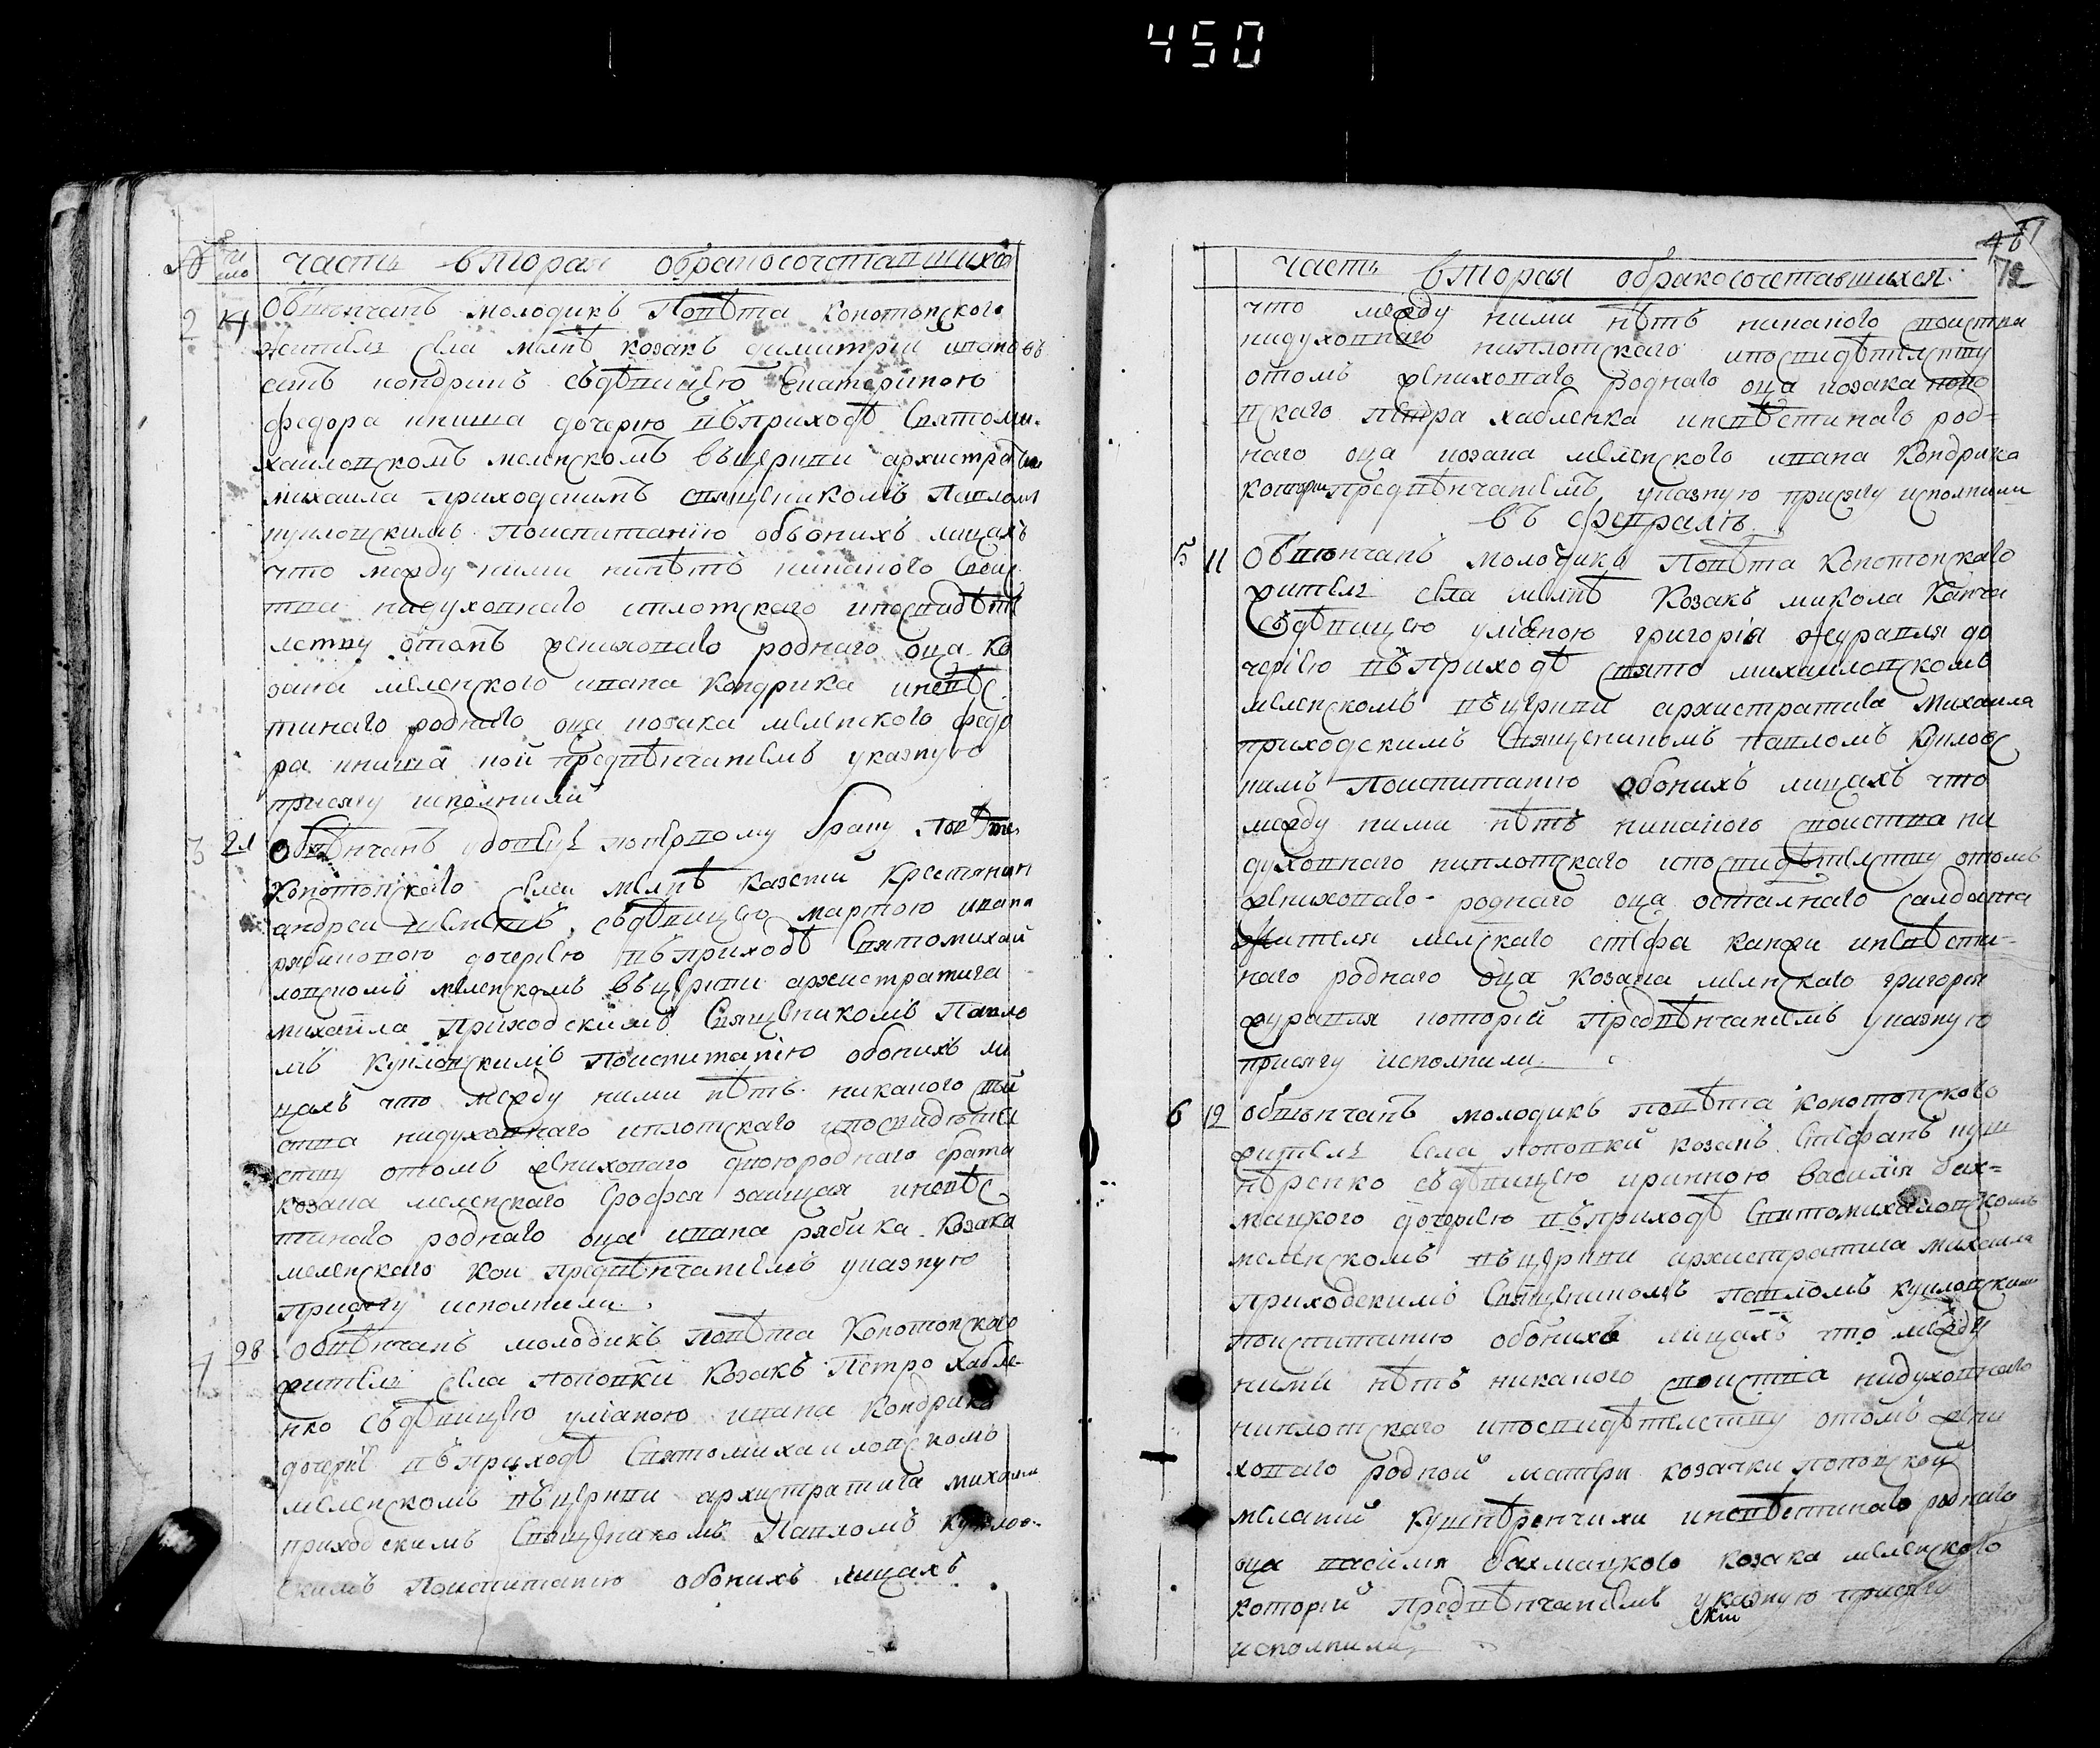 450
№ чи сло часть вторая обракосочетавшихся
2 14 Обвѣнчанъ молодикъ Повѣта конотопского
житель села меннѣ козакъ димитрій ивановъ
синъ кондрикъ съдѣвицею Екатериною
федора книша дочерію въприходѣ Святоми-
хаиловскомъ меленскомъ въцеркви архистратига
михаила приходскимъ священикомъ Павломъ
куиловскимъ Поиспитанію обоихъ лицахъ
что между ними нинѣтъ никакого свойс
тва нидуховнаго иплотскаго ипосвидѣте
леству отомъ женихонаго роднаго оца ко
зака меленского ивана Кондрика иневѣс
тинаго роднаго оца козака меленского федо
ра книша кой предвѣнчаніемъ указную
присягу исполнили
3 21 Обвѣнчанъ удовецъ повторному браку Повѣта
Конотопского села казеній крестянин
андрей съдѣвицею мартою ивана
рябиковою дочерію въприходѣ Святомихай
ловскомъ меленскомъ въцеркви архистратига
михаила Приходскимъ Священикомъ Павло
мъ Куиловскимъ Поиспитанію обоихъ ли
цахъ что между ними нѣтъ никакого свой
ства нидуховнаго иплотскаго ипосвидѣтел
ству отомъ женихонаго двоюроднаго брата
козака меленскаго иневѣс
тинаго роднаго оца ивана рябика козака
меленскаго кои предвѣнчаніемъ указную
Присягу исполнили
4 28 Обвѣнчанъ молодикъ повѣта Конотопскаго
житель села поповки Козакъ Петро хабле-
нко съдѣвицею уліаною ивана Кондрика
дочеріе въприходѣ Святомихаиловскомъ
меленскомъ въцеркви архистратига михаила
приходскимъ Священикомъ Павломъ Куилов-
скимъ Поиспитанію обоихъ лицахъ
72
часть вторая обракосочетавшихся
что между ними нѣтъ никакого свойства
нидуховнаго ниплотскаго ипосвидѣтелству
отомъ женихонаго роднаго оца козака попо
вскаго Петра хабленка иневѣстинаго род-
наго оца козака меленского ивана Кондрика
которіи Предвѣнчаніемъ указную присягу исполнили
въ февралѣ
5 11 Обвѣнчанъ молодикъ Повѣта Конотопскаго
житель села Козакъ микола Капча
съдѣвицею уліаною григорія журавля до
черію въприходѣ Свято михаиловскомъ
меленскомъ въцеркви архистратига Михаила
приходскимъ Священикомъ павломъ Куиловс
кимъ Поиспитанію обоихъ лицахъ что
между ними нѣтъ никакого свойства ни
духовнаго ниплотскаго ипосвидѣтелству отомъ
женихонаго роднаго оца осталнаго салдата
жителя менскаго стефа иневѣсти-
наго роднаго оца козака меленскаго григорія
журавля которій Предвѣнчаніемъ указную
присягу исполнили
6 12 обвѣнчанъ молодикъ повѣта конотопского
житель села поповки козакъ Стефанъ куш
нѣренко съдѣвицею ириною василія бах-
мацкого дочерію въприходѣ Святомихаиловскомъ
меленскомъ въцеркви архистратига михаила
приходскимъ Священикомъ павломъ куиловским
поиспитанію обоихъ лицахъ что между
ними нѣтъ никакого свойства нидуховнаго
ниплотскаго ипосвидѣтелству отомъ жени
хонаго родной матери козачки поповской
меланіи Кушнѣренчихи иневѣстинаго роднаго
оца василя бахмацкого козака меленского
которій Предвѣнчаніемъ указную присягу
исполнили